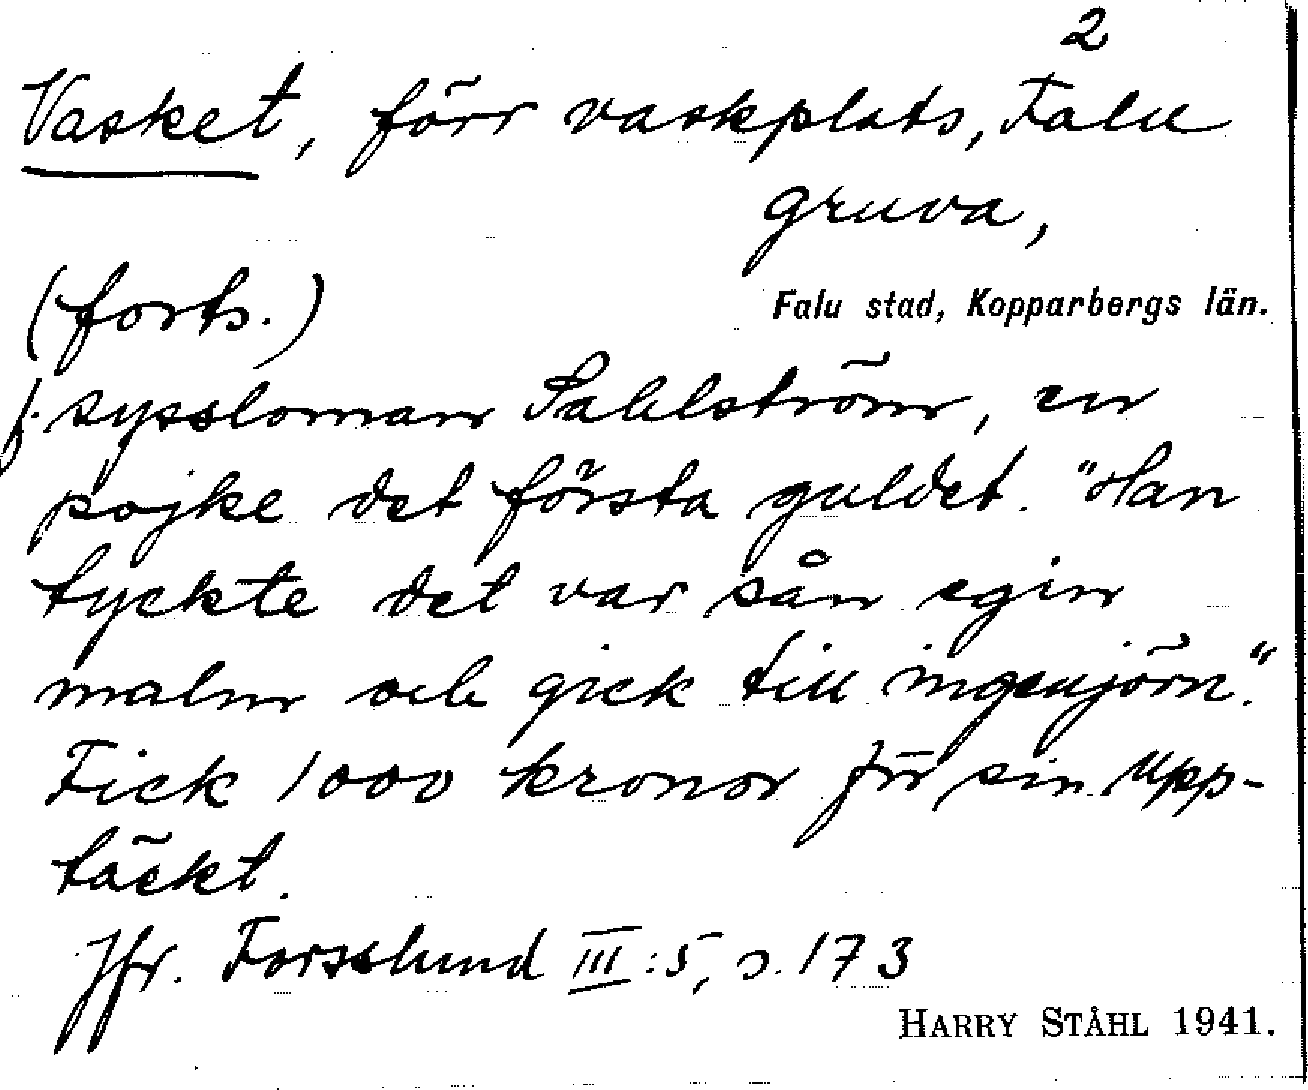 2
Vasket, förr vaskplats, Falu
gruva,
(forts.)
Falu stad, Kopparbergs län.
f. syssloman Sahlström, en
pojke det första guldet. "Han
tyckte det var sån egin
malm och gick till ingenjörn."
Fick 1000 kronor för sin upp-
täckt.
Jfr. Forsslund III:5, s. 173
HARRY STÅHL 1941.